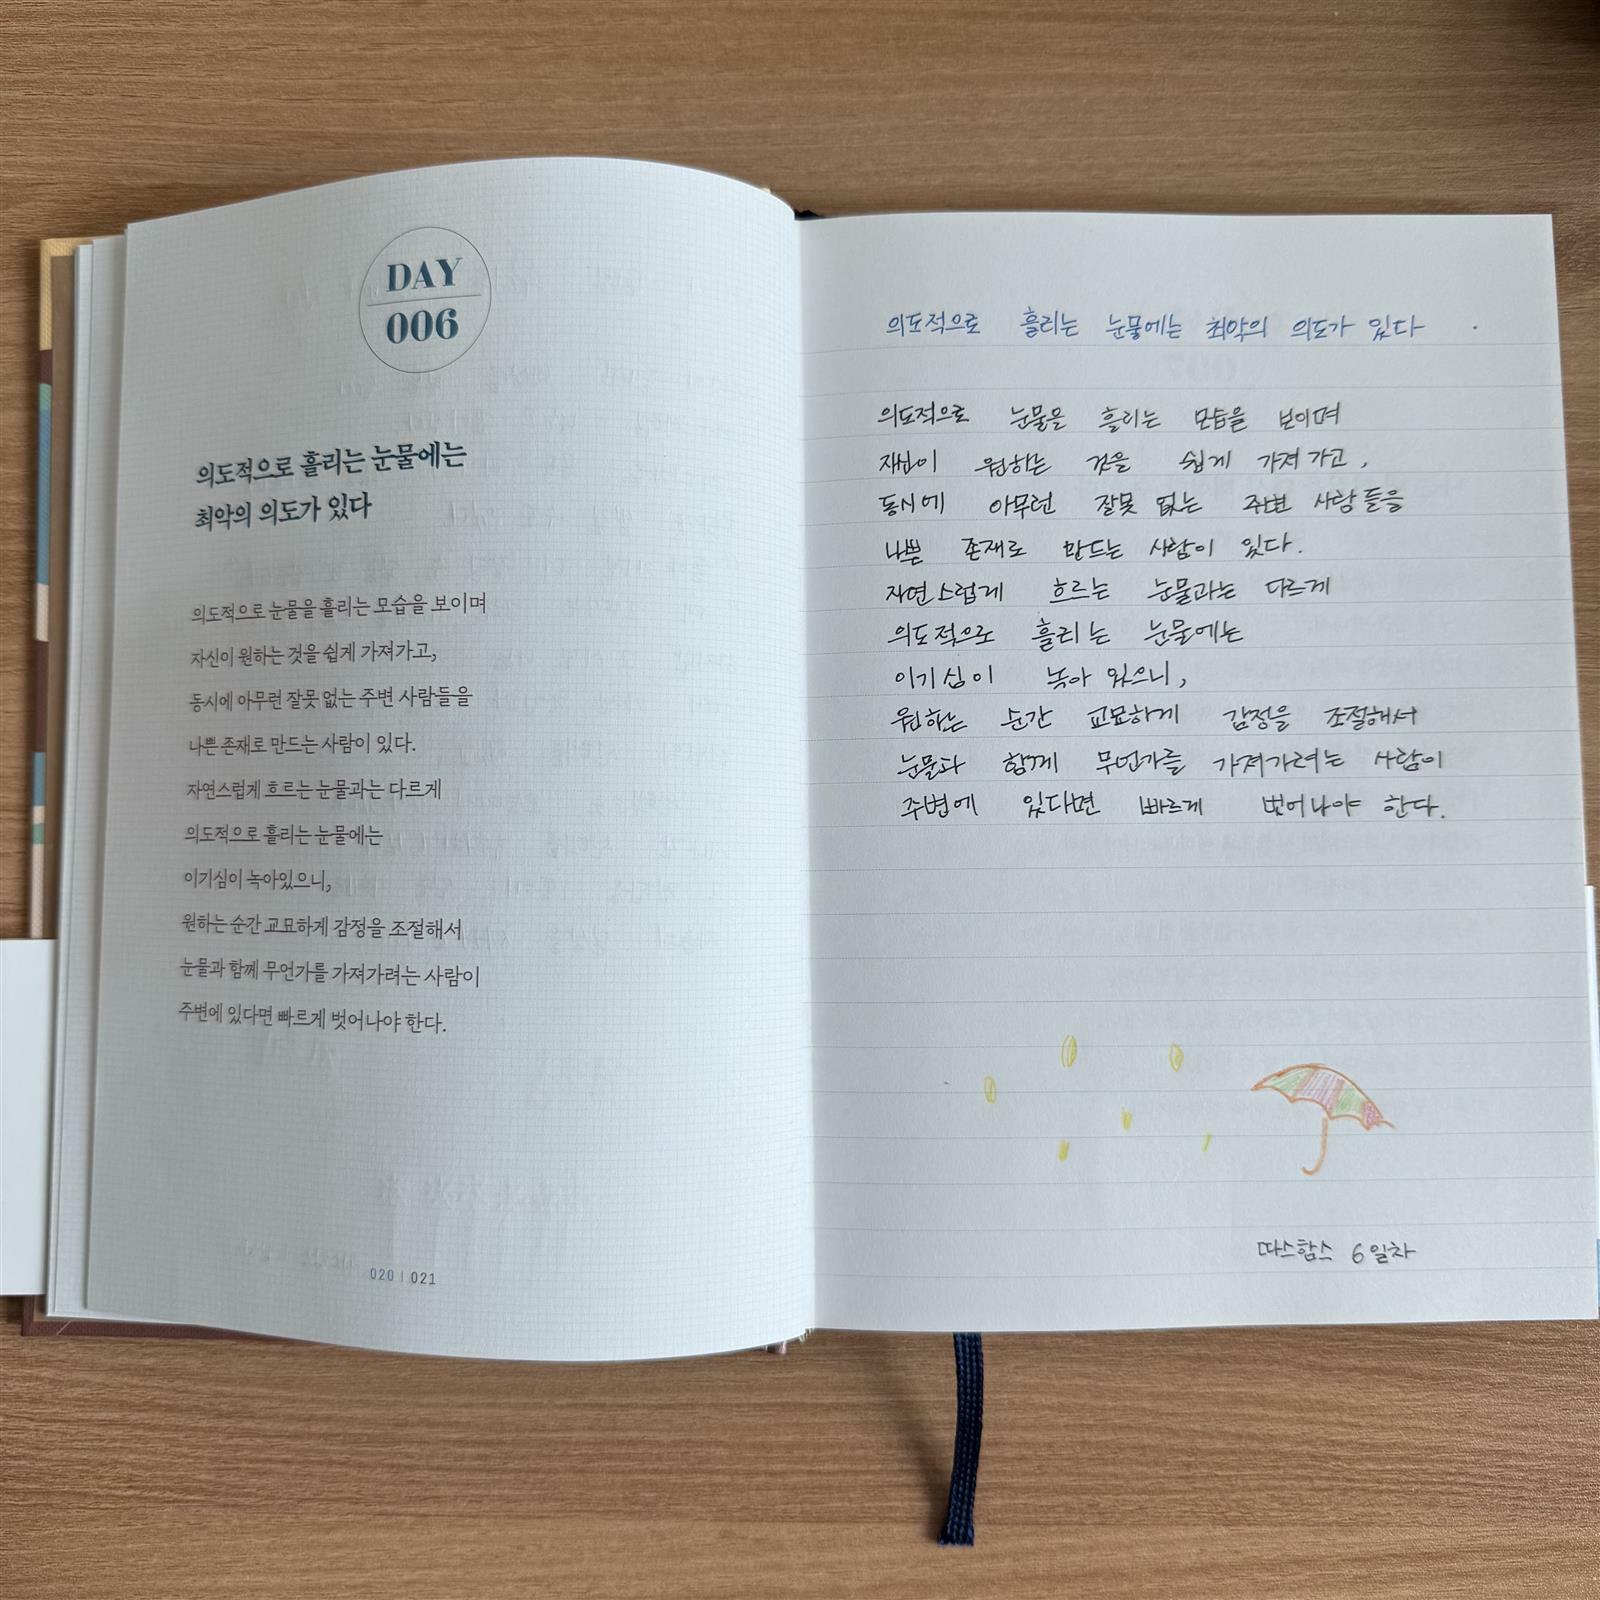 DAY
006
의도적으로 흘리는 눈물에는
최악의 의도가 있다
의도적으로 눈물을 흘리는 모습을 보이며
자신이 원하는 것을 쉽게 가져가고,
동시에 아무런 잘못 없는 주변 사람들을
나쁜 존재로 만드는 사람이 있다.
자연스럽게 흐르는 눈물과는 다르게
의도적으로 흘리는 눈물에는
이기심이 녹아있으니,
원하는 순간 교묘하게 감정을 조절해서
눈물과 함께 무언가를 가져가려는 사람이
주변에 있다면 빠르게 벗어나야 한다.
020 | 021
의도적으로 흘리는 눈물에는 최악의 의도가 있다
의도적으로 눈물을 흘리는 모습을 보이며
자신이 원하는 것을 쉽게 가져가고,
동시에 아무런 잘못 없는 주변 사람들을
나쁜 존재로 만드는 사람이 있다.
자연스럽게 흐르는 눈물과는 다르게
의도적으로 흘리는 눈물에는
이기심이 녹아 있으니,
원하는 순간 교묘하게 감정을 조절해서
눈물과 함께 무언가를 가져가려는 사람이
주변에 있다면 빠르게 벗어나야 한다.
따스함스 6일차